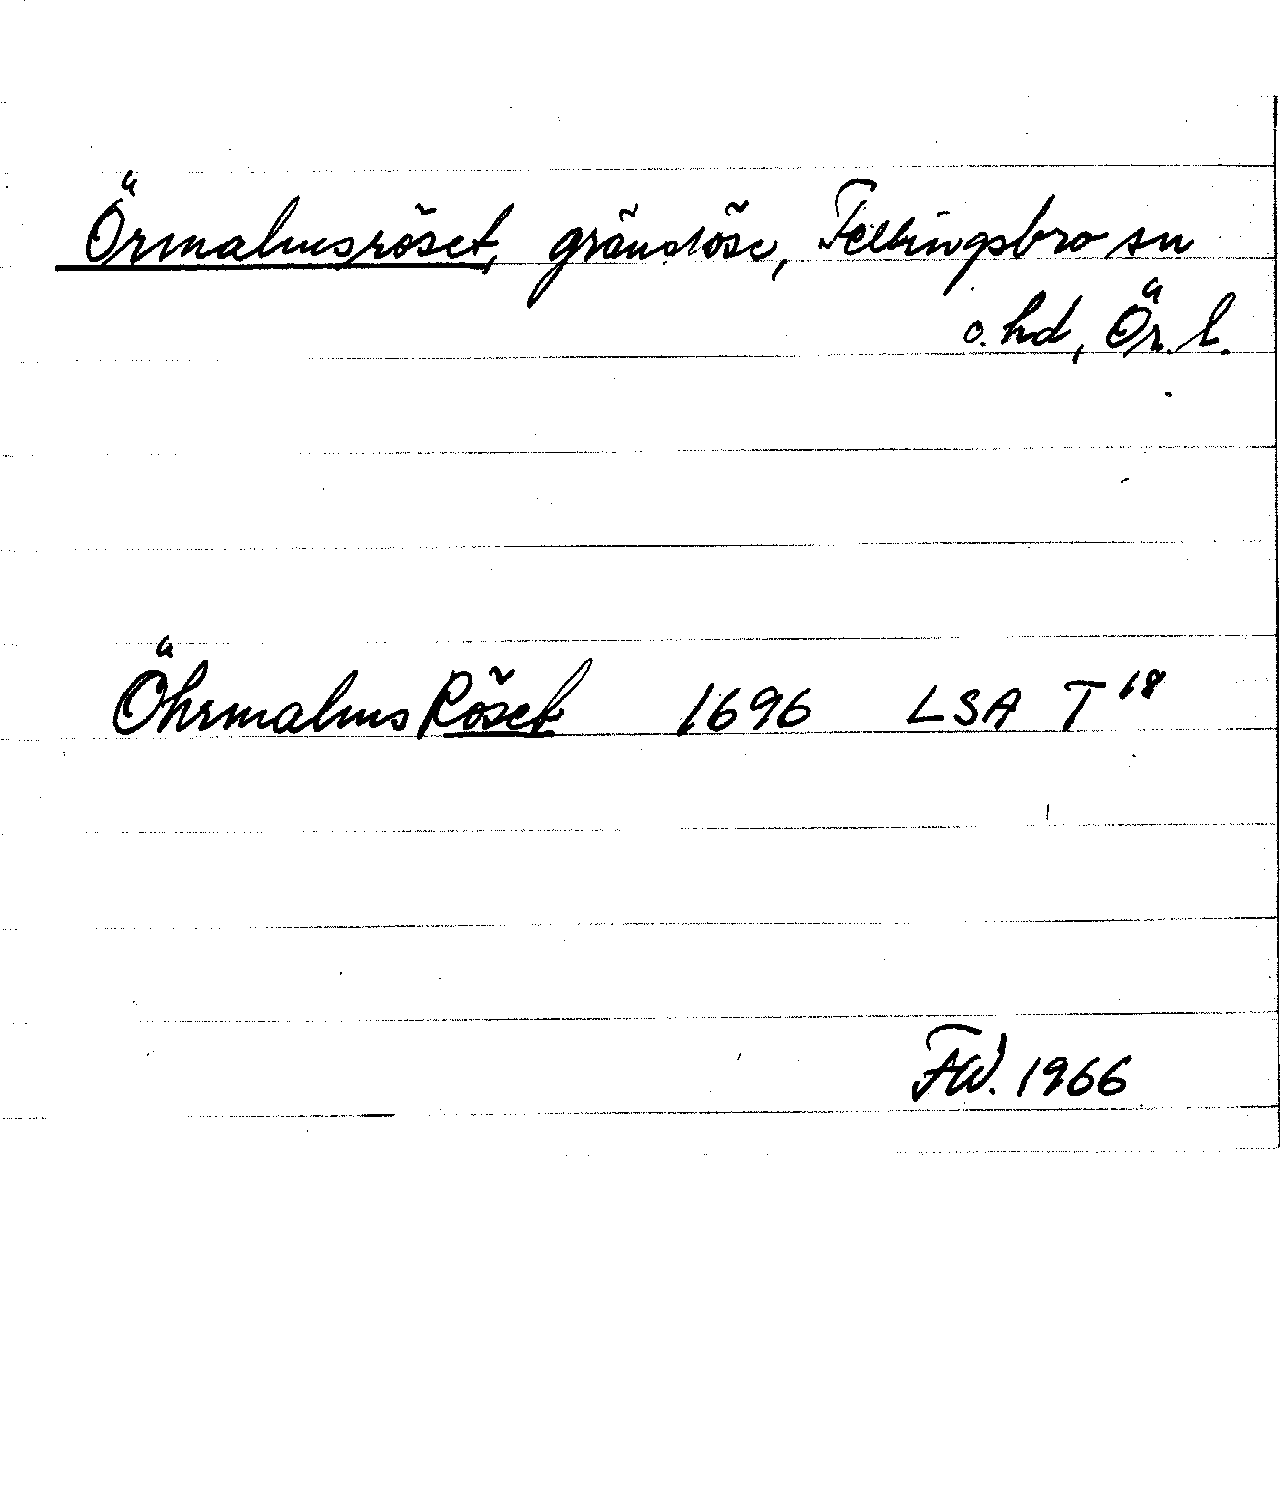 Örmalmsröset, gränsröse, Fellingsbro sn
o. hd, Ör. l.
Öhrmalms Röset 1696 LSA T 18
FW. 1966